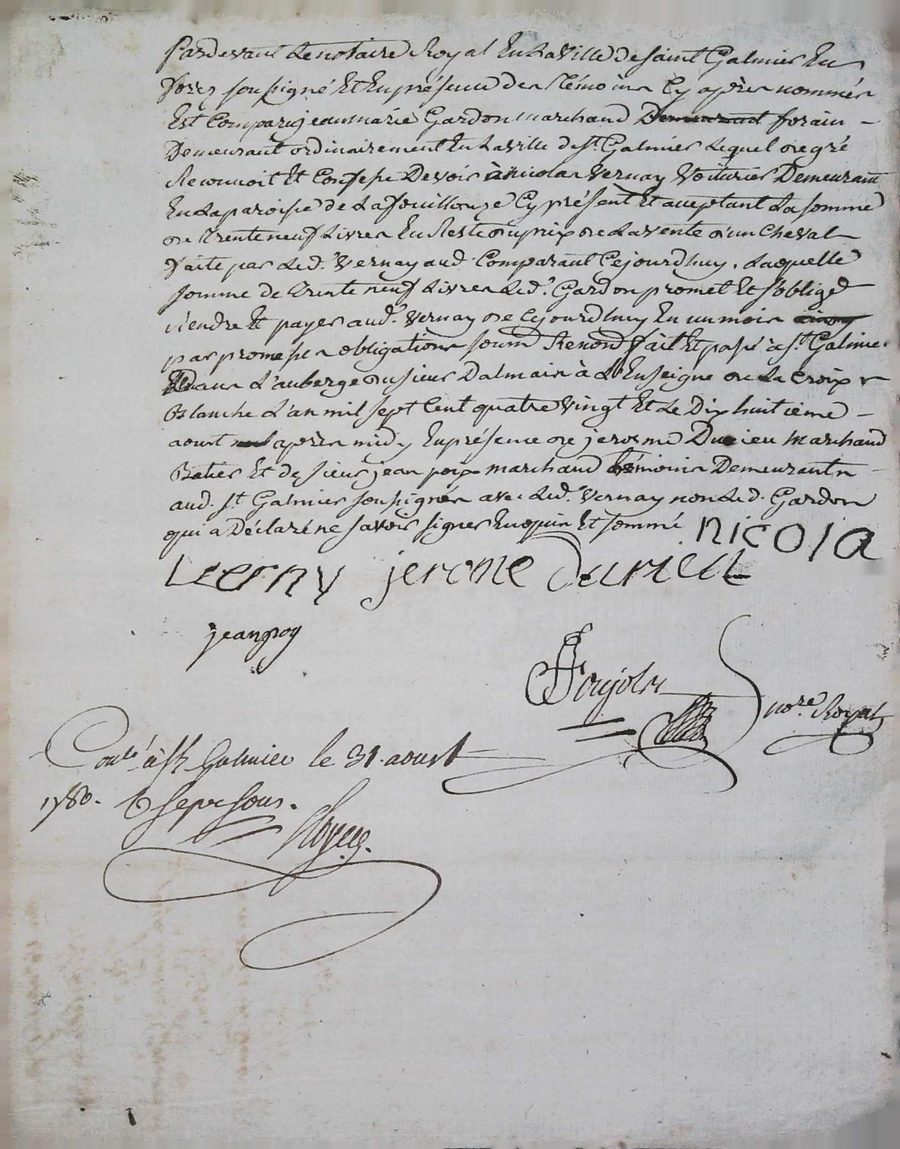 Pardevant Le notaire Royal En la Ville de Saint Galmier En
forez soussigné Et En présence des Témoins Cy après nommés
Est Comparu jean marie Gardon marchand Demeurant forain
Demeurant ordinairement En La ville de St. Galmier Lequel de gré
Reconnoit Et Confesse Devoir à nicolas Vernay Voiturier Demeurant
En La paroisse de La fouillouze Cy présent Et acceptant La somme
de trente neuf Livres En Reste du prix de La vente d'un Cheval
faite par Led. Vernay aud. Comparant Cejourdhuy, Laquelle
somme de trente neuf Livres Led. Gardon promet Et s'oblige
rendre Et payer aud. Vernay de Cejourdhuy En un mois
par promesses obligations soum. Renond. fait Et passé a St. Galmier
Dans L'auberge du sieur Dalmais à L'Enseigne de La Croix
Blanche L'an mil sept Cent quatre Vingt Et Le Dix huitième
aoust après midy En présence de jerosme Durieu marchand
Batier Et de sieur jean marchand témoins Demeurants
aud. St. Galmier soussignés avec Led. Vernay non Led. Gardon
qui a Déclaré ne savoir signer Enquis Et sommé nicola
Verny jerome Durieu
jean
Pujols nore. Royal
Conlé à St Galmier le 31 aoust
1780. sept sous.